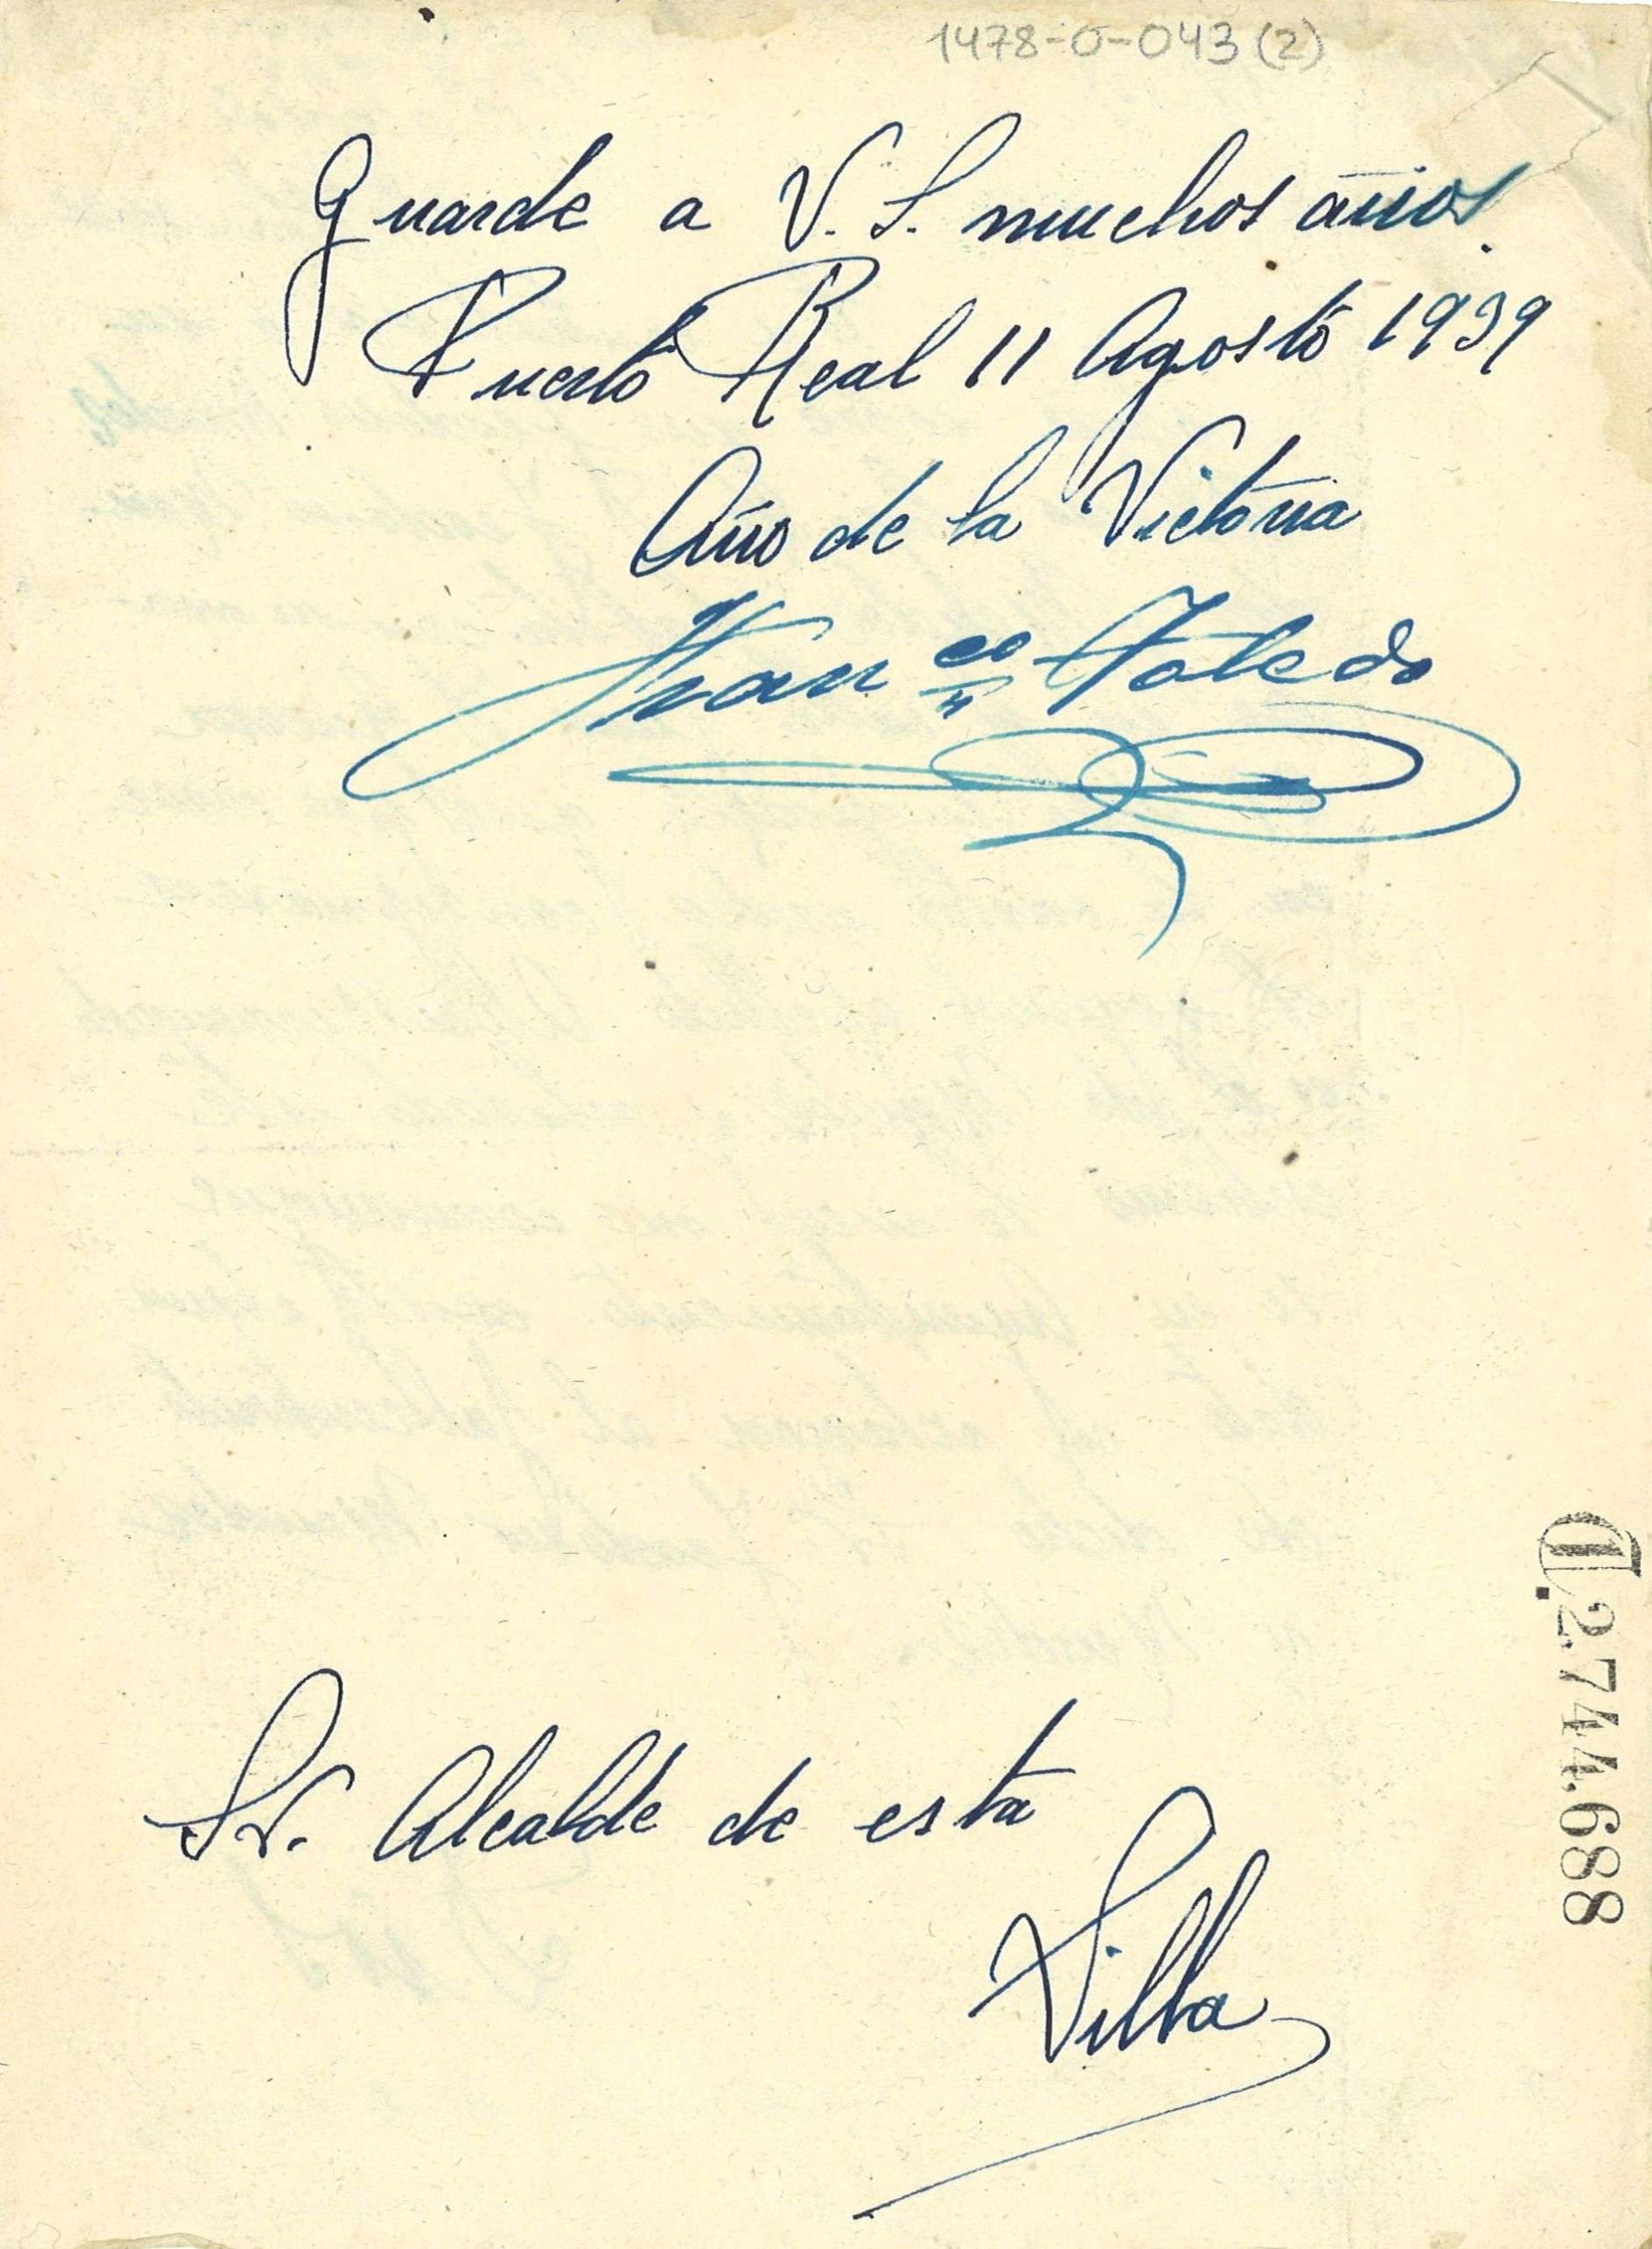 1478-0-043 (2)
Guarde a V. S. muchos años.
Puerto Real 11 Agosto 1939
Año de la Victoria
Franco Toledo
Sr. Alcalde de esta
Villa
2.744.688